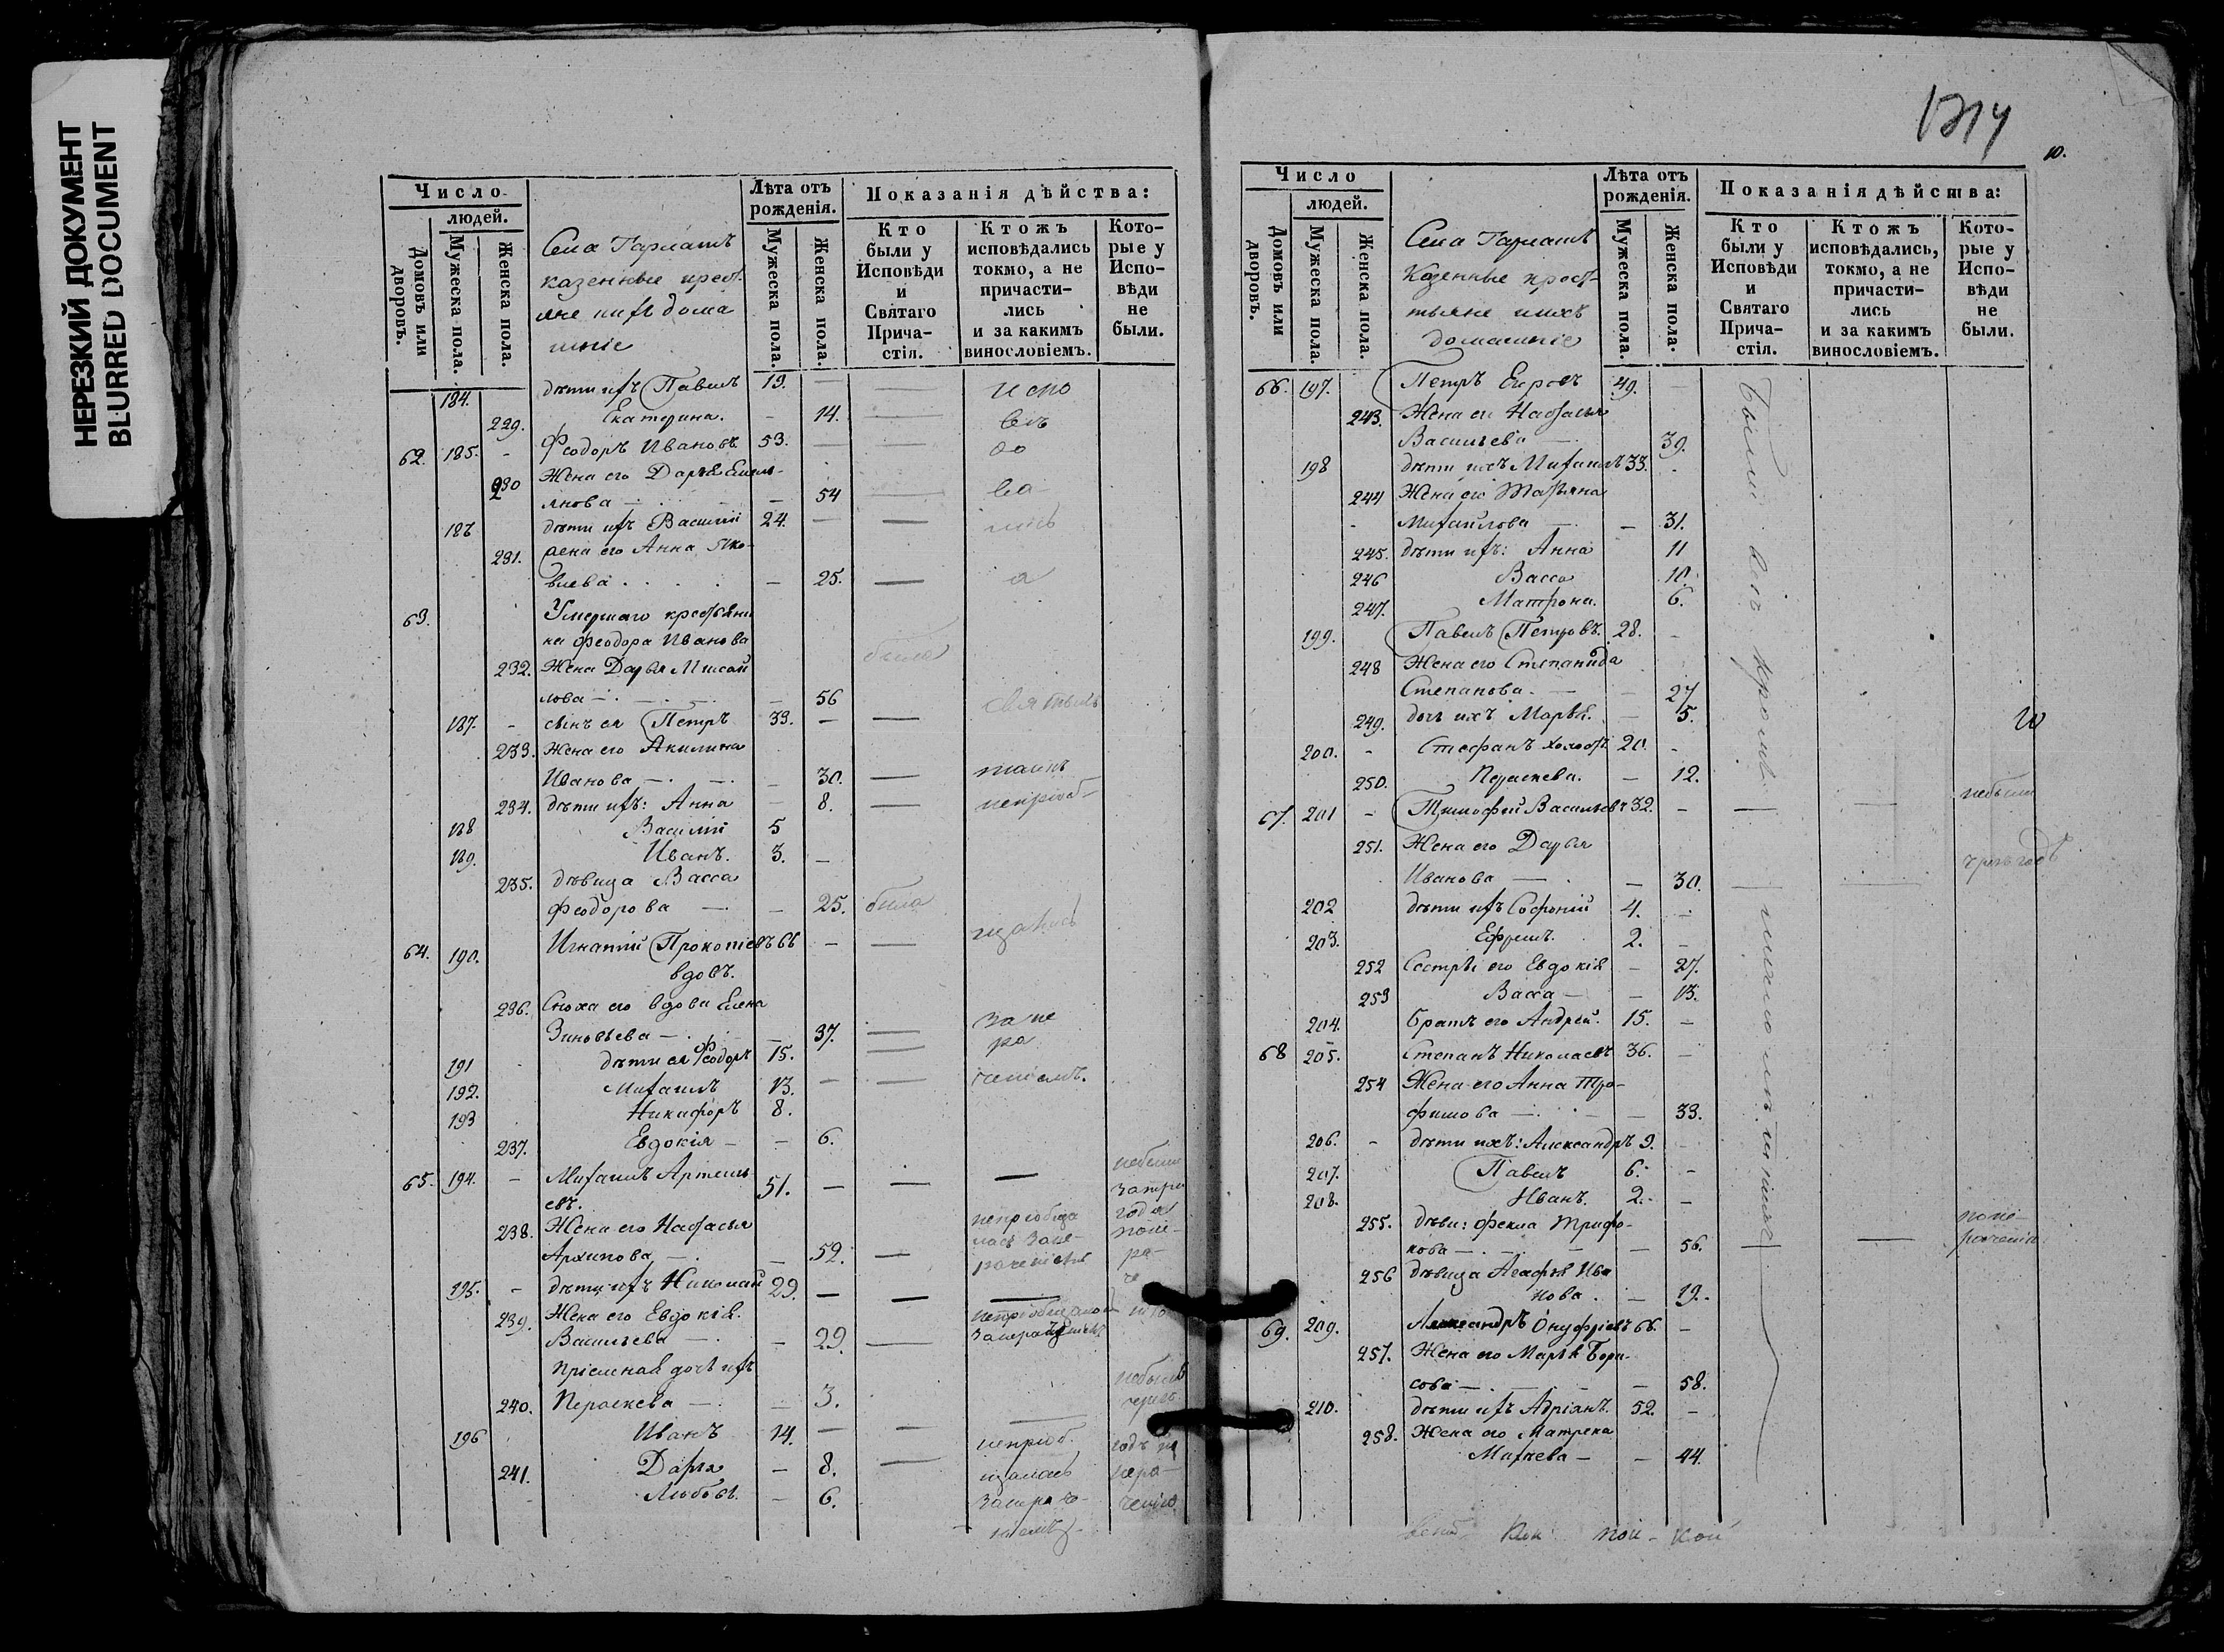 НЕРЕЗКИЙ ДОКУМЕНТ
BLURRED DOCUMENT
Число
людей.
Домовъ или дворовъ.
Мужеска пола.
Женска пола.
Села
казенные крест-
яне ихъ дома
шніе
Лѣта отъ рожденія.
Мужеска пола.
Женска пола.
Показанія дѣйства:
Кто были у Исповѣди и Святаго Прича-стія.
Ктожъ исповѣдались токмо, а не причасти-лись и за какимъ винословіемъ.
Кото-рые у Испо-вѣди не были.
184. дѣти ихъ Павелъ 19. — —
229. Екатерина. — 14. —
62. 185. - Феодоръ Ивановъ 53. — —
230 Жена его Дарья Емел-
янова — 54 —
186 дѣти ихъ Василій 24. — —
231. жена его Анна Яко-
влева — 25. —
63. Умершаго крестьяни
на Феодора Иванова
232. Жена Дарья Михай
лова — 56 была
187. - сынъ ея Петръ 33. — —
233. Жена его Акилина
Иванова — 30. —
234. дѣти ихъ: Анна — 8. — непріоб-
188 Василій 5
189. Иванъ. 3. —
235. дѣвица Васса
Феодорова — — 25. была
64. 190. Игнатій Прокопіевъ 66 — —
вдовъ.
236. Сноха его вдова Елена
Зиновьева — 37. —
191 дѣти ея Феодоръ 15. —
192. Михаилъ 13. — —
193 Никифоръ 8.
237. Евдокія — — 6.
65. 194. - Михаилъ Артемь
евъ. 51. — — — небылъ
238. Жена его Настасья
Архипова — — 52. — непріобща
лась
195. - дѣти ихъ Николай 29. — — —
239. Жена его Евдокія
Васильева — 29. —
Пріемная дочь ихъ
240. Параскева — — 3.
196 Иванъ 14. — — —
241. Дарья — 8. —
Любовь. — 6.
1214
10.
Число
людей.
Домовъ или дворовъ.
Мужеска пола.
Женска пола.
Села
Казенные крест-
тьяне ихъ
домашніе
Лѣта отъ рожденія.
Мужеска пола.
Женска пола.
Показанія дѣйства:
Кто были у Исповѣди и Святаго Прича-стія.
Ктожъ исповѣдались, токмо, а не причасти-лись и за какимъ винословіемъ.
Кото-рые у Испо-вѣди не были.
Были всѣ кромѣ
66. 197. Петръ Егоровъ 49. —
243. Жена его Настасья
Васильева — 39.
198 дѣти ихъ Михаилъ 33.
244 Жена его Татьяна
Михайлова — — 31.
245. дѣти ихъ: Анна 11
246 Васса 10.
247. Матрона. 6.
199. Павелъ Петровъ. 28. —
248 Жена его Степанида
Степанова. — — 27
249. дочь ихъ Марья. — 5.
200. - Стефанъ холостъ 20. -
250. Параскева. — 12.
67. 201 - Тимофей Васильевъ 32. — — — небыли
251. Жена его Дарья
Иванова — — 30. — —
202 дѣти ихъ Софоній 4. —
203. Ефремъ. 2. —
252 Сестры его Евдокія — 27.
253 Васса — — 13.
204. братъ его Андрей. 15. —
68 205. Степанъ Николаевъ 36. —
254 Жена его Анна Тро-
фимова — — 33.
206. - дѣти ихъ: Александръ 9. —
207. Павелъ 6. -
208. Иванъ. 2. —
255. дѣви: Фекла Трифо-
нова — — 56. — —
256 дѣвица Агафья Ива
нова. — 19.
69. 209. Александръ Онуфріевъ 66. —
257. Жена его Марья Бори-
сова — — 58.
210. дѣти ихъ Адріанъ. 52. —
258. Жена его Матрена
— — 44.